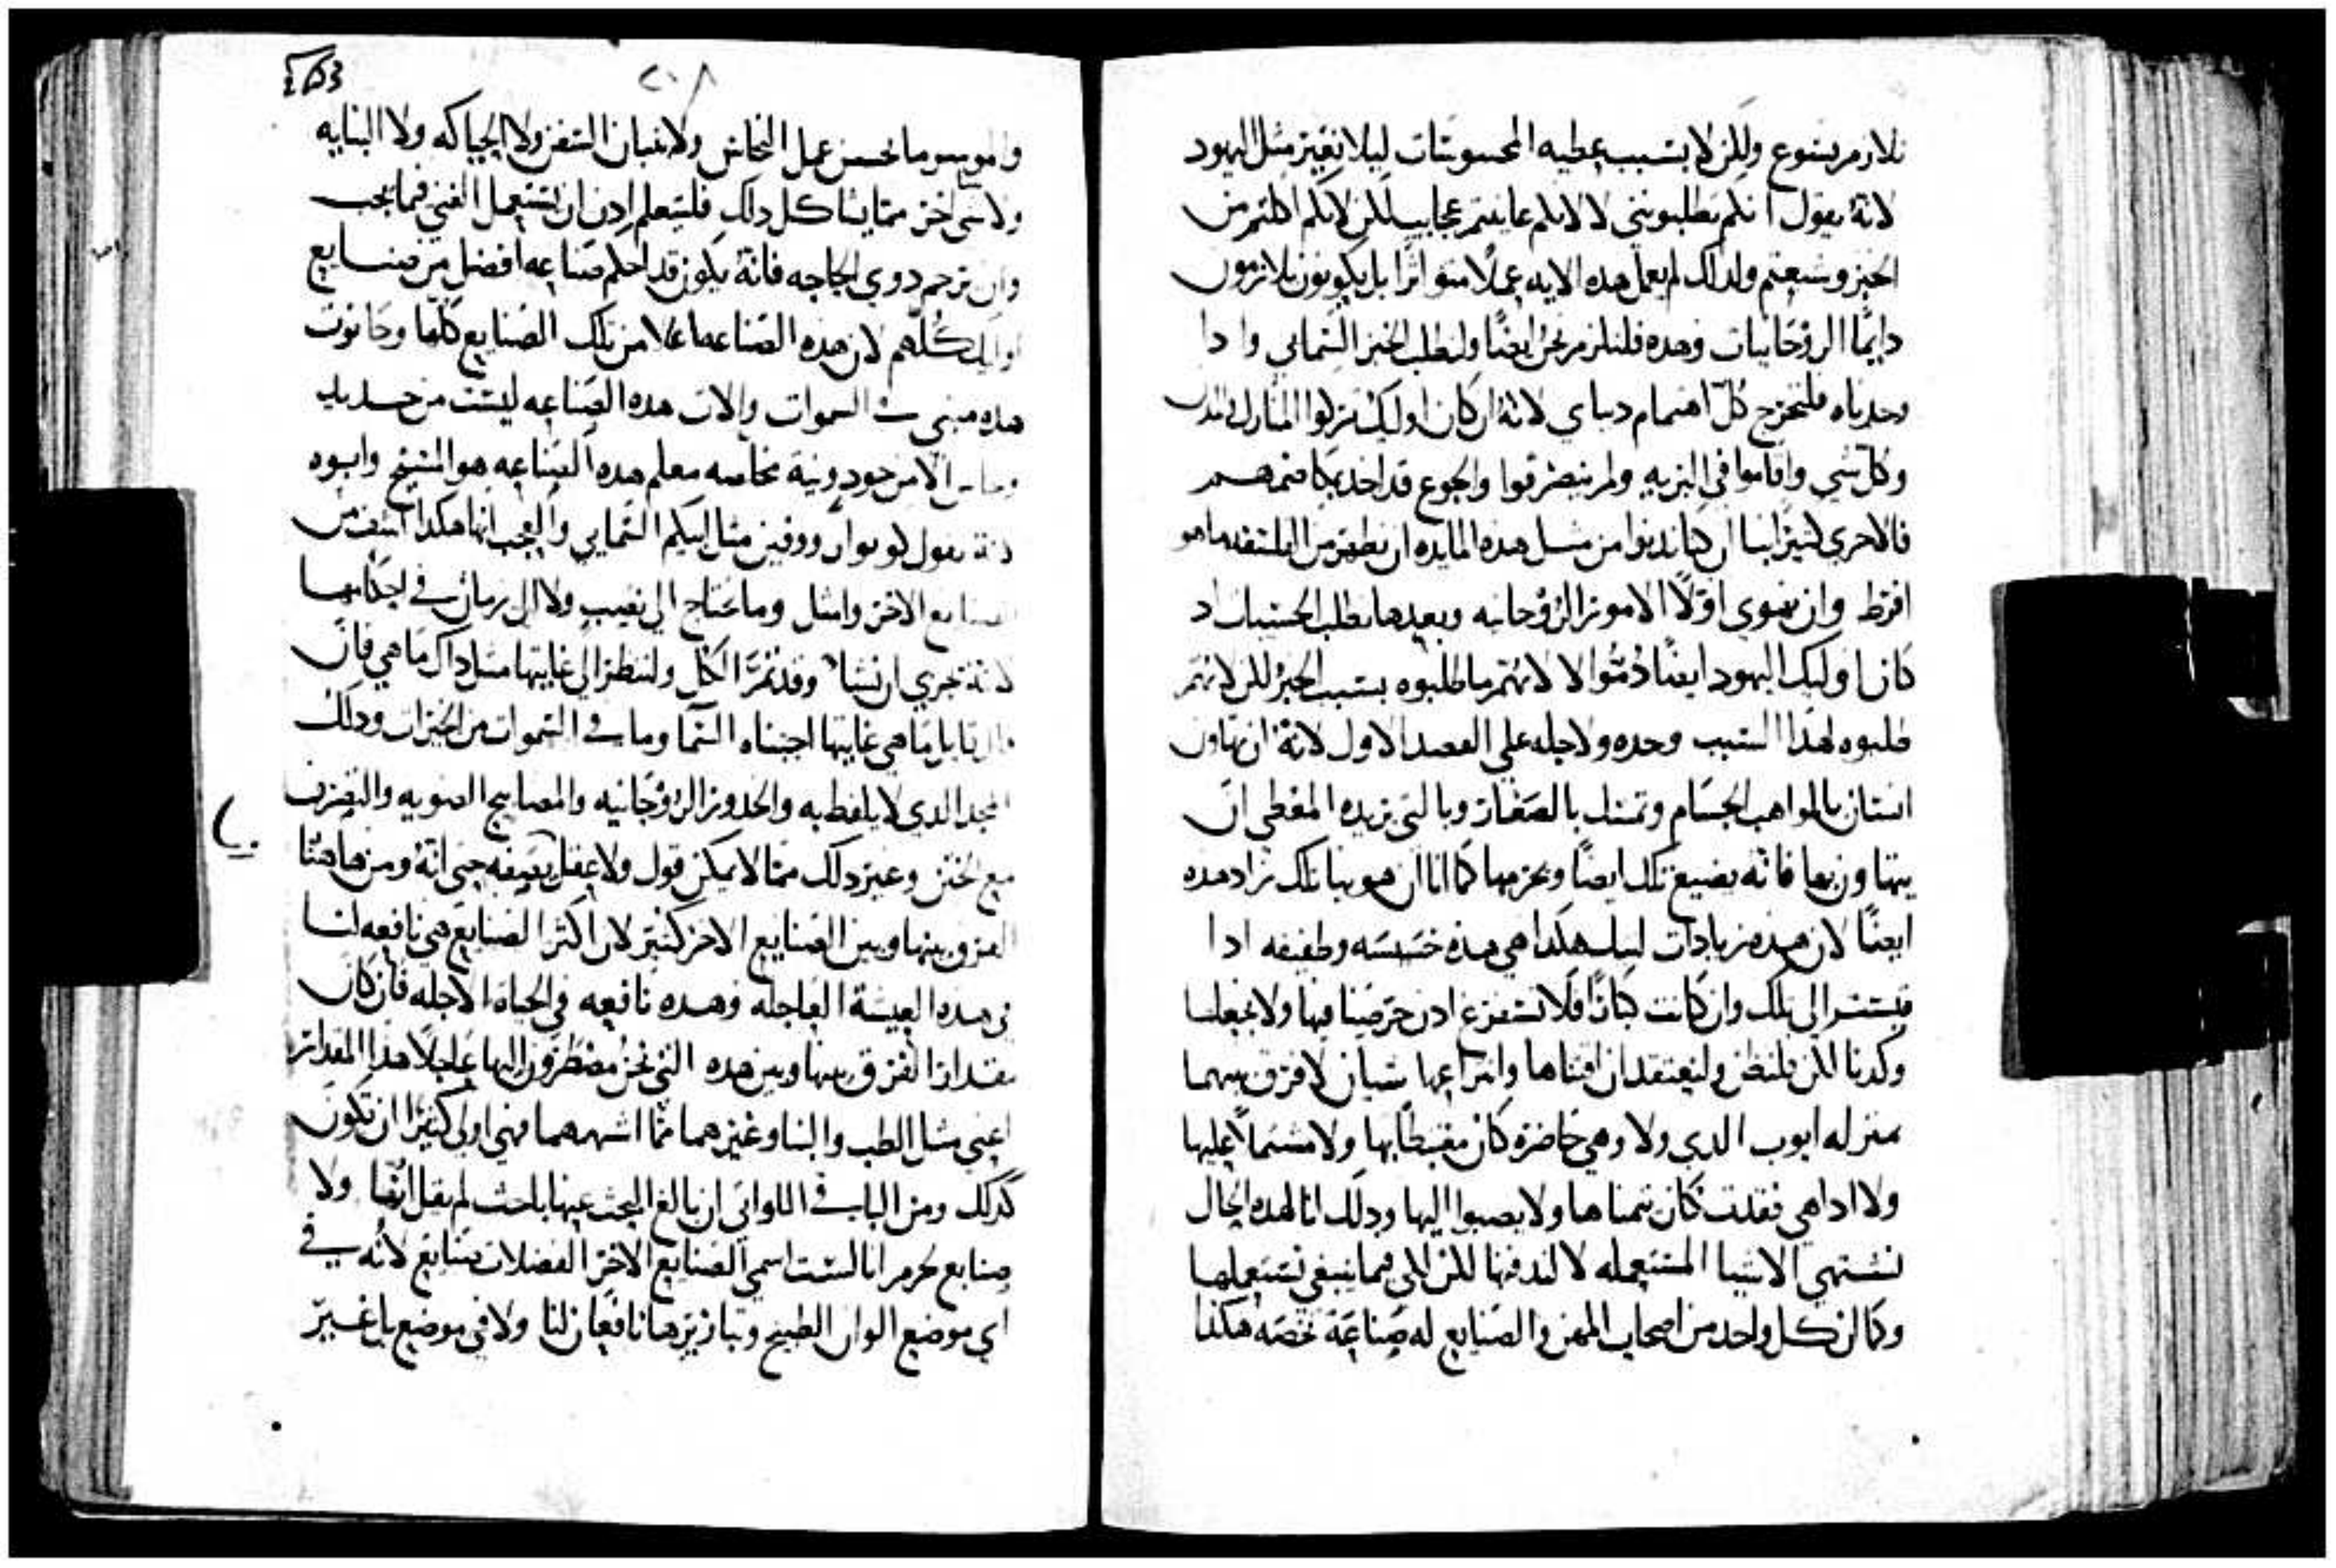 نلازم يسوع ولكن لا بسبب عطيه المحسوسات ليلا نعير مثل اليهود
لانه يقول انكم تطلبونني لا لانكم عاينتم عجايب لكن لانكم اكلتم من
الخبز وشبعتم ولدلك لم يعمل هده الايه عملا متواترا بل يكونون يلازمون
دايما الروحانيات وهده فلنلزم نحن ايضا ولنطلب الخبز السمايي وادا
وجدناه فلنخرج كل اهتمام دنياي لانه ان كان اوليك تركوا المنازل والمدن
وكل شي واقاموا في البريه ولم ينصرفوا والجوع قد اخد بكامنهم
فالاحري كثيرا بنا ان كنا ندنوا من مثل هده المايده ان نظهر من الفلسفه ما هو
افرط وان نهوي اولا الامور الروحانيه وبعدها نطلب الحسيات اد
كان اوليك اليهود ايضا دموا لا لانهم ما طلبوه بسبب الخبز لكن لانهم
طلبوه لهدا السبب وحده ولاجله علي القصد الاول لانه ان تهاون
انسان بالمواهب الجسام وتمسك بالصغار وبالتي يريده المعطي ان
يتهاون بها فانه يضيع تلك ايضا ويحرمها كما اننا ان هوينا تلك زاد هده
ايضا لان هده زيادات لتلك هكدا هي هده خسيسه وطفيفه ادا
قيست الي تلك وان كانت كبارا فلا نستفرغ ادن حرصنا فيها ولا نجعلها
وكدنا لكن فلنظن ولنعتقد ان اقتناها وانتزاعها سيان لا فرق بينهما
بمنزله ايوب الدي ولا وهي حاضره كان مغتبطا بها ولا مشتملا عليها
ولا ادا هي فقدت كان يتمناها ولا يصبوا اليها ودلك اننا لهده الحال
نشتهي الاشيا المستعمله لا لندفنها لكن لكي فيما ينبغي نستعملها
وكما ان كل واحد من اصحاب المهن والصنايع له صناعه تخصه هكدا
٢٠٨
والموسوم ما يحسن عمل النحاس ولا بنيان السفن ولا الحياكه ولا البنايه
ولا شي اخر مما يشاكل دلك فليتعلم ادن ان يستعمل الغني فيما يجب
وان يرحم دوي الحاجه فانه يكون قد احكم صناعه افضل من صنايع
اوليك كلهم لان هده الصناعه اعلا من تلك الصنايع كلها وحانوت
هده مبني في السموات والات هده الصناعه ليست من حديد
ونحاس الا من جود ونيه خالصه معلم هده الصناعه هو المسيح وابوه
لانه يقول كونوا رووفين مثل ابيكم السمايي والعجب انها هكدا اشرف من
الصنايع الاخر وامثل وما تحتاج الي تعب ولا الي زمان في احكامها
لانه تجزي ان نشا وقد تم الكل ولننظر الي غايتها مثل داك ما هي فان
قال قايل ما هي غايتها اجبناه السما وما في السموات من الخيرات ودلك
المجد الدي لا يلفظ به والخدور الروحانيه والمصابيح الضويه والتصرف
مع الختن وغير دلك مما لا يمكن قول ولا عقل يصفه حتي انه ومن هاهنا
الفرق بينها وبين الصنايع الاخر كثير لان اكثر الصنايع هي نافعه لنا
في هده العيشة العاجله وهده نافعه في الحياه الاجله فان كان
مقدار الفرق بينها وبين هده التي نحن مضطرون اليها عاجلا هدا المقدار
اعني مثل الطب والبنا وغيرهما مما اشبههما فهي اولي كثيرا ان تكون
كدلك ومن الباب في اللواتي ان بالغ البحث عنها باحث لم يقل انها ولا
صنايع لجرم انا لست اسمي الصنايع الاخر الفضلات صنايع لانه في
اي موضع الوان الطبيخ وتبازيرها نافعان لنا ولا في موضع بل غير